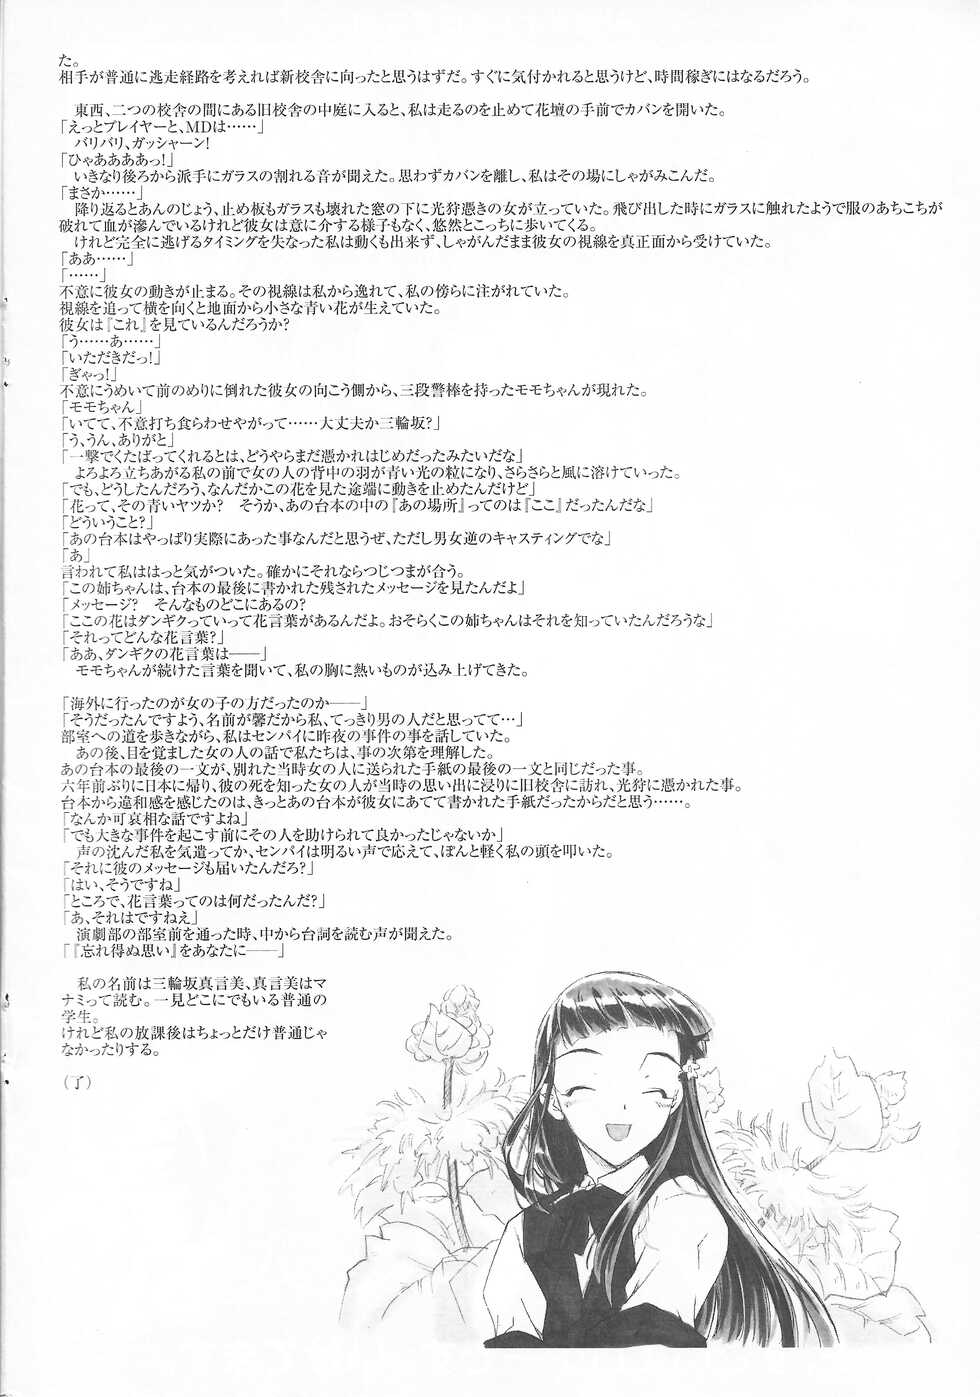 た。
相手が普通に逃走経路を考えれば新校舎に向ったと思うはずだ。すぐに気付かれると思うけど、時間稼ぎにはなるだろう。
東西、二つの校舎の間にある旧校舎の中庭に入ると、私は走るのを止めて花壇の手前でカバンを開いた。
「えっとプレイヤーと、MDは……」
バリバリ、ガッシャーン!
「ひゃああああっ!」
いきなり後ろから派手にガラスの割れる音が聞えた。思わずカバンを離し、私はその場にしゃがみこんだ。
「まさか……」
降り返るとあんのじょう、止め板もガラスも壊れた窓の下に光狩憑きの女が立っていた。飛び出した時にガラスに触れたようで服のあちこちが
破れて血が滲んでいるけれど彼女は意に介する様子もなく、悠然とこっちに歩いてくる。
けれど完全に逃げるタイミングを失なった私は動くも出来ず、しゃがんだまま彼女の視線を真正面から受けていた。
「ああ……」
「……」
不意に彼女の動きが止まる。その視線は私から逸れて、私の傍らに注がれていた。
視線を追って横を向くと地面から小さな青い花が生えていた。
彼女は『これ』を見ているんだろうか?
「う……あ……」
「いただきだっ!」
「ぎゃっ!」
不意にうめいて前のめりに倒れた彼女の向こう側から、三段警棒を持ったモモちゃんが現れた。
「モモちゃん」
「いてて、不意打ち食らわせやがって……大丈夫か三輪坂?」
「う、うん、ありがと」
「一撃でくたばってくれるとは、どうやらまだ憑かれはじめだったみたいだな」
よろよろ立ちあがる私の前で女の人の背中の羽が青い光の粒になり、さらさらと風に溶けていった。
「でも、どうしたんだろう、なんだかこの花を見た途端に動きを止めたんだけど」
「花って、その青いヤツか?　そうか、あの台本の中の『あの場所』ってのは『ここ』だったんだな」
「どういうこと?」
「あの台本はやっぱり実際にあった事なんだと思うぜ、ただし男女逆のキャスティングでな」
「あ」
言われて私ははっと気がついた。確かにそれならつじつまが合う。
「この姉ちゃんは、台本の最後に書かれた残されたメッセージを見たんだよ」
「メッセージ?　そんなものどこにあるの?
「ここの花はダンギクっていって花言葉があるんだよ。おそらくこの姉ちゃんはそれを知っていたんだろうな」
「それってどんな花言葉?」
「ああ、ダンギクの花言葉は――」
モモちゃんが続けた言葉を聞いて、私の胸に熱いものが込み上げてきた。
「海外に行ったのが女の子の方だったのか――」
「そうだったんですよう、名前が馨だから私、てっきり男の人だと思ってて…」
部室への道を歩きながら、私はセンパイに昨夜の事件の事を話していた。
あの後、目を覚ました女の人の話で私たちは、事の次第を理解した。
あの台本の最後の一文が、別れた当時女の人に送られた手紙の最後の一文と同じだった事。
六年前ぶりに日本に帰り、彼の死を知った女の人が当時の思い出に浸りに旧校舎に訪れ、光狩に憑かれた事。
台本から違和感を感じたのは、きっとあの台本が彼女にあてて書かれた手紙だったからだと思う……。
「なんか可哀相な話ですよね」
「でも大きな事件を起こす前にその人を助けられて良かったじゃないか」
声の沈んだ私を気遣ってか、センパイは明るい声で応えて、ぽんと軽く私の頭を叩いた。
「それに彼のメッセージも届いたんだろ?」
「はい、そうですね」
「ところで、花言葉ってのは何だったんだ?」
「あ、それはですねえ」
演劇部の部室前を通った時、中から台詞を読む声が聞えた。
「『忘れ得ぬ思い』をあなたに――」
私の名前は三輪坂真言美、真言美はマ
ナミって読む。一見どこにでもいる普通の
学生。
けれど私の放課後はちょっとだけ普通じゃ
なかったりする。
（了）